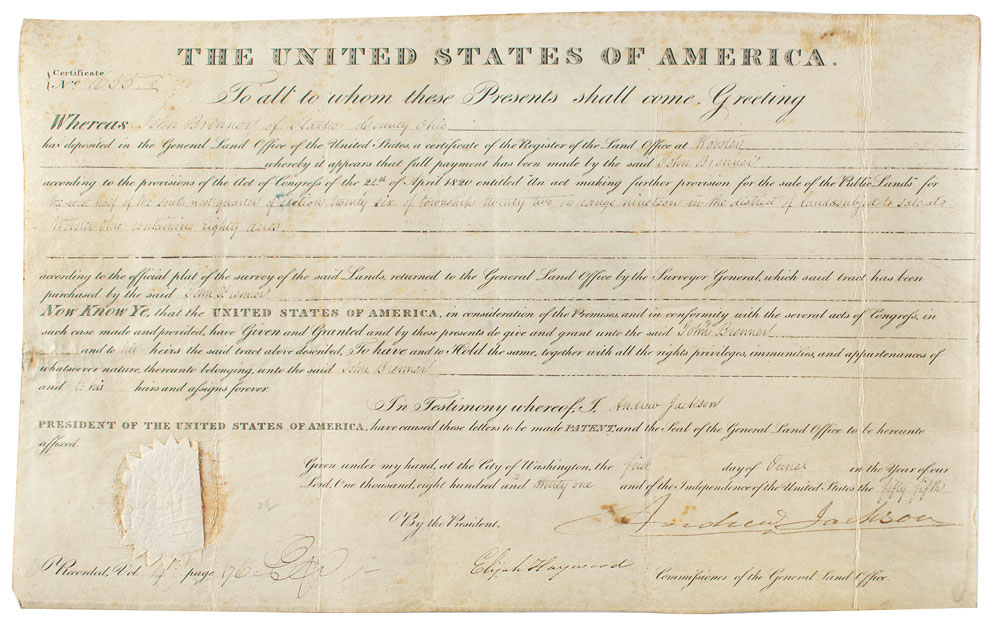 THE UNITED STATES OF AMERICA.
Certificate
No.
To all to whom these Presents shall come, Greeting
Whereas John Brenner of Starke County Ohio
has deposited in the General Land Office of the United States, a certificate of the Register of the Land Office at Wooster
whereby it appears that full payment has been made by the said John Brenner
according to the provisions of the Act of Congress of the 24th of April 1820 entitled "An act making further provision for the sale of the Public Lands" for
the west half of the South west quarter of Section twenty six of township twenty two on range nineteen in the district of lands subject to sale at
Wooster Ohio containing eighty acres
according to the official plat of the survey of the said Lands, returned to the General Land Office by the Surveyor General, which said tract has been
purchased by the said John Brenner
Now Know Ye, that the UNITED STATES OF AMERICA, in consideration of the Premises, and in conformity with the several acts of Congress, in
such case made and provided, have Given and Granted and by these presents do give and grant unto the said John Brenner
and to his heirs the said tract above described, To have and to Hold the same, together with all the rights privileges, immunities, and appurtenances of
whatsoever nature, thereunto belonging, unto the said John Brenner
and to his heirs and assigns forever.
In Testimony whereof, I, Andrew Jackson
PRESIDENT OF THE UNITED STATES OF AMERICA, have caused these letters to be made PATENT, and the Seal of the General Land Office to be hereunto
affixed.
Given under my hand, at the City of Washington, the first day of in the Year of our
Lord, One thousand, eight hundred and thirty one and of the Independence of the United States the fifty fifth
By the President. Andrew Jackson
Recorded, Vol. 4 page 176 Elijah Hayward Commissioner of the General Land Office.